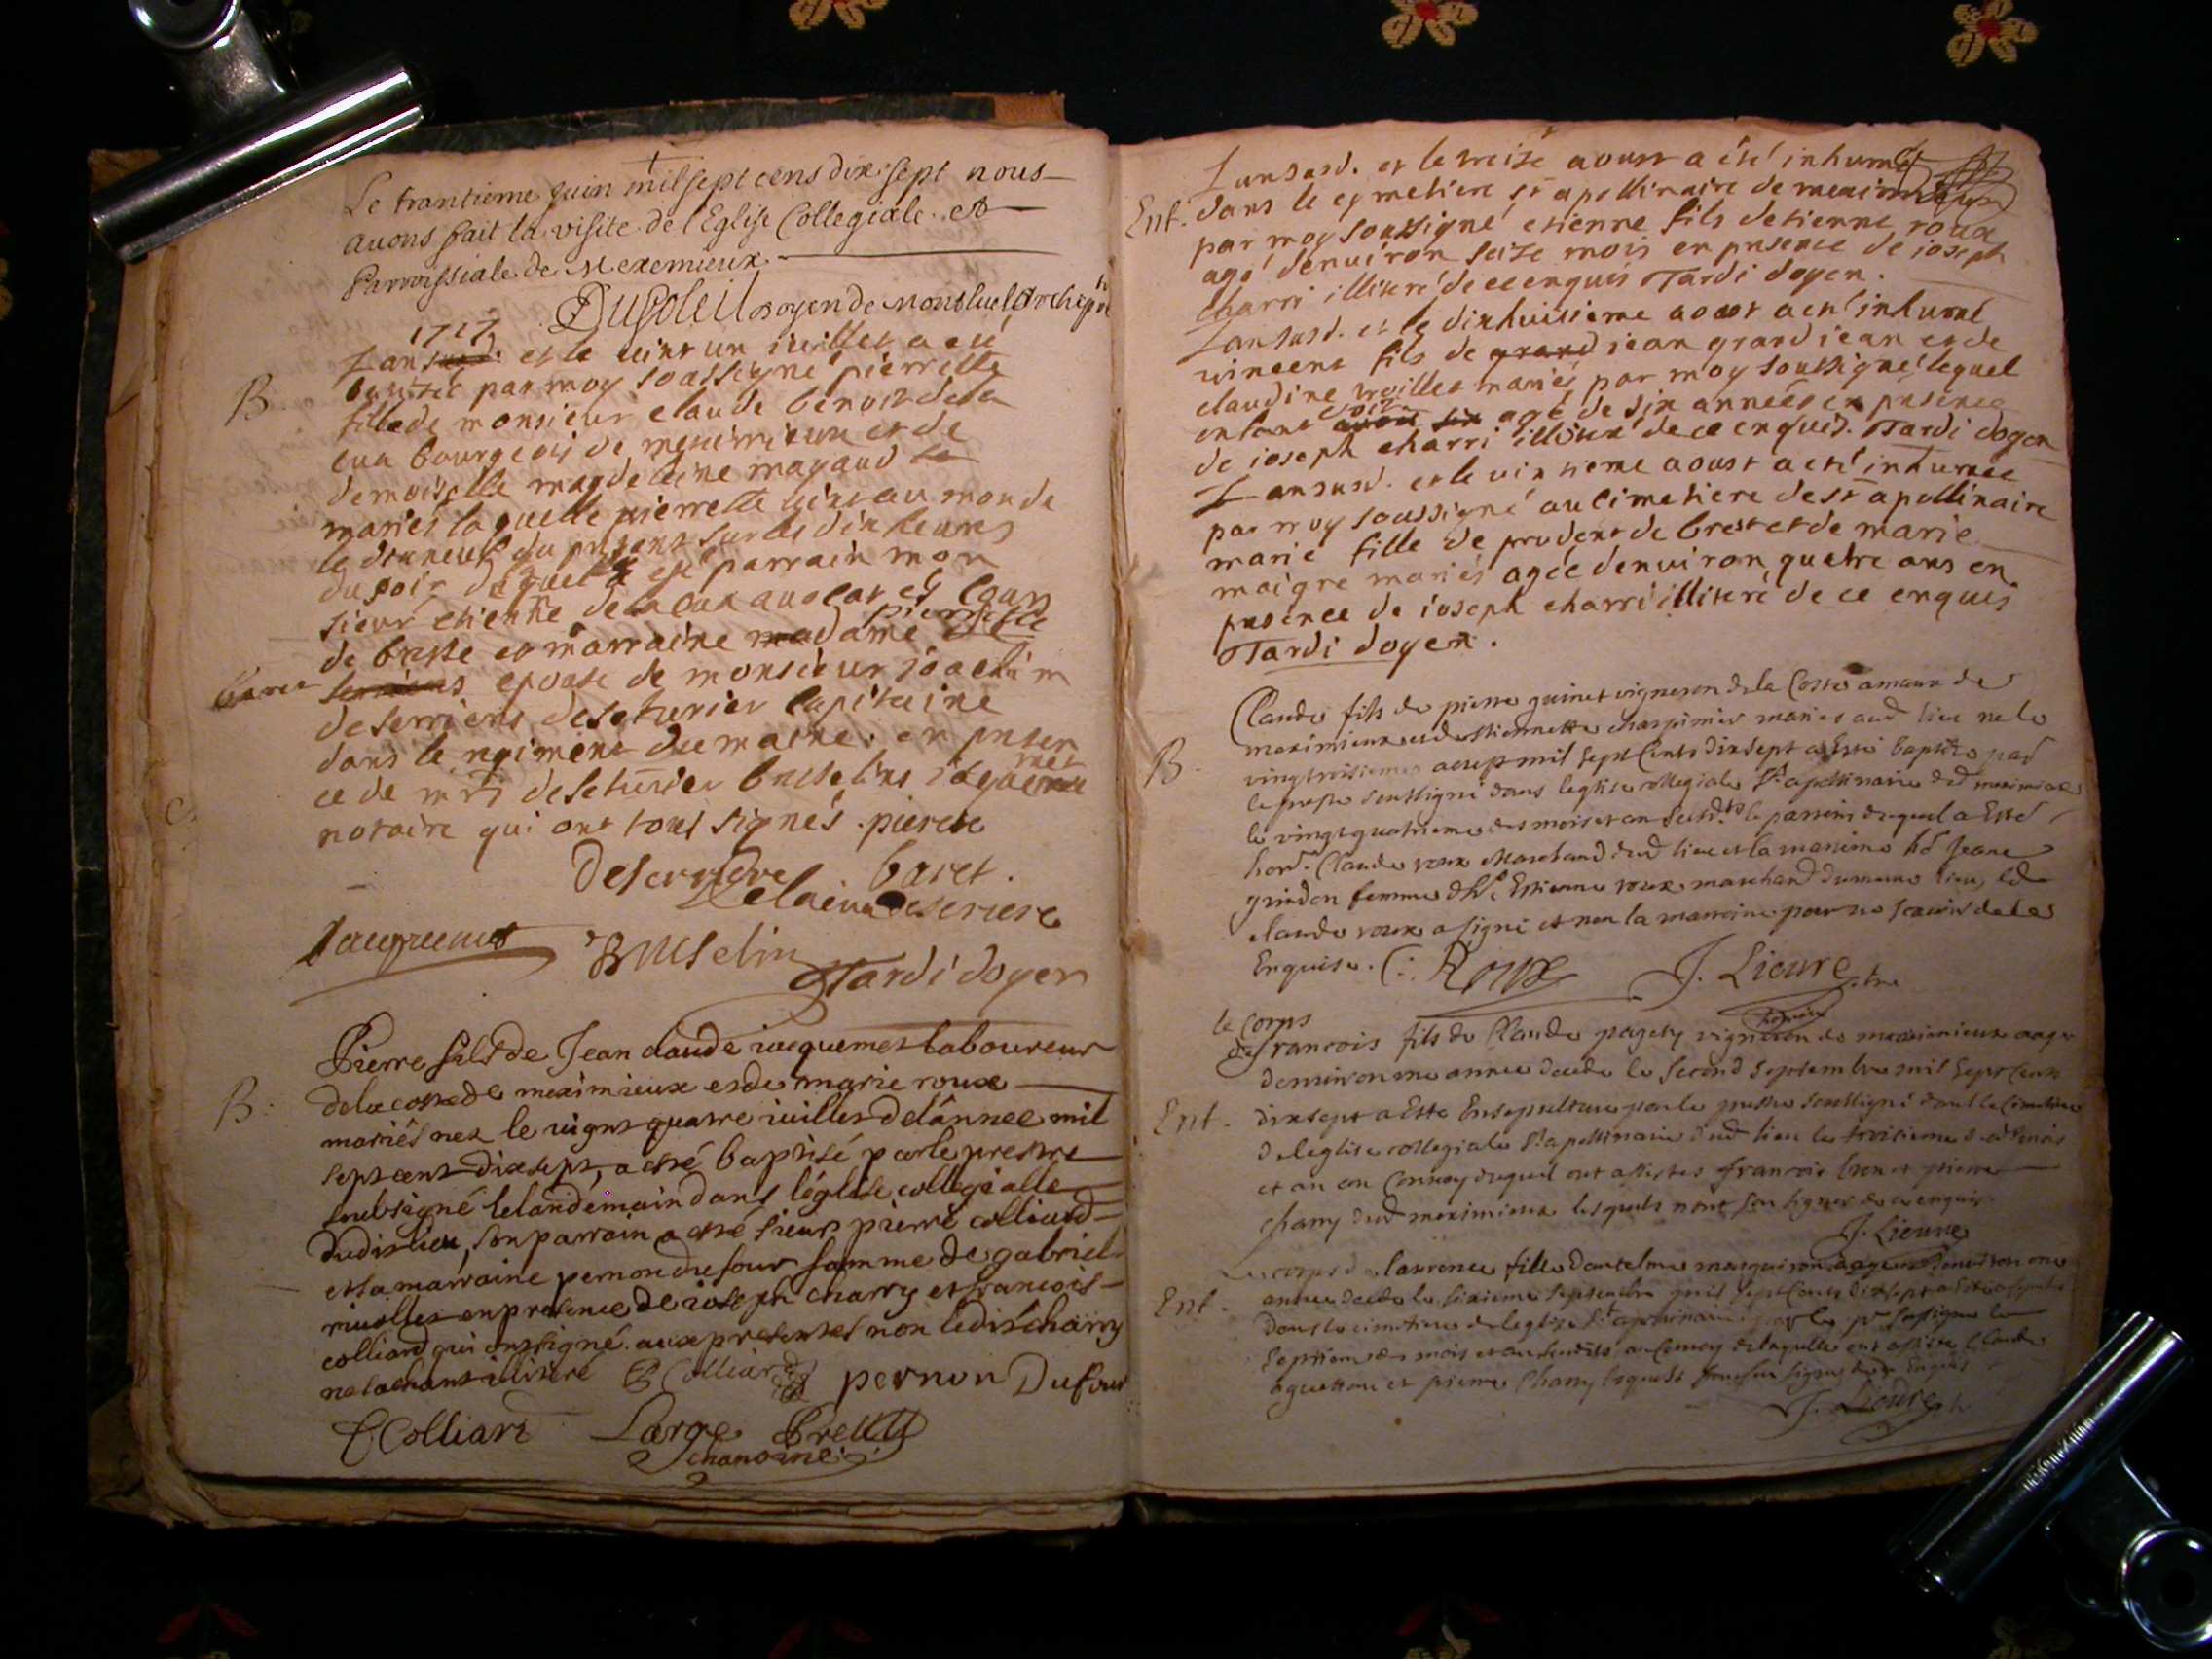 Le trantieme juin mil sept cens dix sept nous
avons fait la visite de l'Eglise Collegiale et
Parroissiale de Meximieux
DuSoleil doyen de Monsluel Archip
1717
L'an et le vint un iuillet a eté
B. batizée par moy soussigné pierrette
fille de monsieur claude benoit de la
cua bourgeois de meximieux et de
demoiselle magdeleine mayaud
mariés laquelle pierrette vint au monde
le dixneuf du present sur les dix heures
du soir duquel a esté parrain mon
sieur etienne de la cua avocat et
de bresse et marraine madame pierrette
baret epouse de monsieur joachim
de serriere capitaine
dans le regiment du maine. en presen
ce de mrs de
notaire qui ont tous signés. pierete
Deserriere baret.
Delacua de seriere
Jacquemet Buselin
Tardi doyen
Pierre fils de Jean claude iacquemet laboureur
B: de la coste de meximieux et de marie roux
mariés nez le vignt quatre iuillet de lánnee mil
sept cent dixsept, a esté baptisé par le prestre
soubsigné le landemain dans léglise collegialle
dudit lieu, son parrain a esté sieur pierre colliard
et sa marraine pernon dufour famme de gabriel
riuollet en presence de ioseph charry et francois
colliard qui ont signé aux presentes non ledit charry
ne sachant illiteré P Colliard pernon Dufour
F Colliard Large Prettre
chanoine
L'an susd. et le treize aoust a eté inhumé
Ent. dans le cymetiere st apollinaire de meximieux
par moy soussigné etienne fils d'etienne roux
agé d'environ seize mois en presence de ioseph
charri illiteré de ce enquis Tardi doyen.
L'an susd. et le dixhuitieme aoust a eté inhumé
vincent fils de grand jean grand jean et de
claudine mariés par moy soussigné lequel
enfant agé de six années en presence
de ioseph charri illiteré de ce enquis. Tardi doyen
L'an susd. et le vintieme aoust a eté inhumée
par moy soussigné au cimetiere de st apollinaire
marie fille de prudent de brest et de marie
maigre mariés agée d'environ quatre ans en
presence de ioseph charri illiteré de ce enquis
Tardi doyen.
Claude fils de pierre guinet vigneron de la Coste amaux de
meximieux et de charpinier maries aud lieu ne le
B. vingt troisieme aoust mil sept Cents dixsept a Esté baptizé par
le prestre soussigné dans leglise collegiale St apollinaire dud meximieux
le vingt quatrieme des mois et an susdts le parrain duquel a Esté
Claude roux Marchand dud lieu et la marrine Jeane
femme d'h Estienne roux marchand du mesme lieu, led
claude roux a signé et non la marrine pour ne scavoir de ce
Enquise. C: Roux J. Lieure ptre
le Corps
de francois fils de Claude vigneron de meximieux aage
denviron une annee decede le second Septembre mil Sept Cents
Ent. dixsept a Esté Ensepulture par le prestre soussigné dans le Cimetiere
de leglise collegiale St apollinaire dud lieu le troisieme dud mois
et an au Convoy duquel ont assistes francois et pierre
charry dud meximieux lesquels nont sceu signer de ce enquis
J. Lieure
Le corps de laurence fille d'antelme aagee denviron une
Ent. annee decedee le sixieme septembre mil sept Cents dixsept a Esté
dans le cimetiere de leglise St apollinaire par le pr soussigne le
septieme des mois et an susdits au Convoy de laquelle ont assiste Claude
et pierre Charry lesquels signer de ce Enquis
J. Lieure ptre